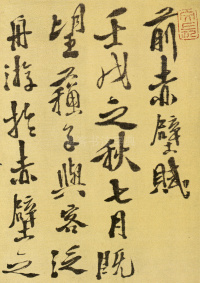 前赤壁賦
壬戌之秋七月既
望蘇子與客泛
舟游於赤壁之